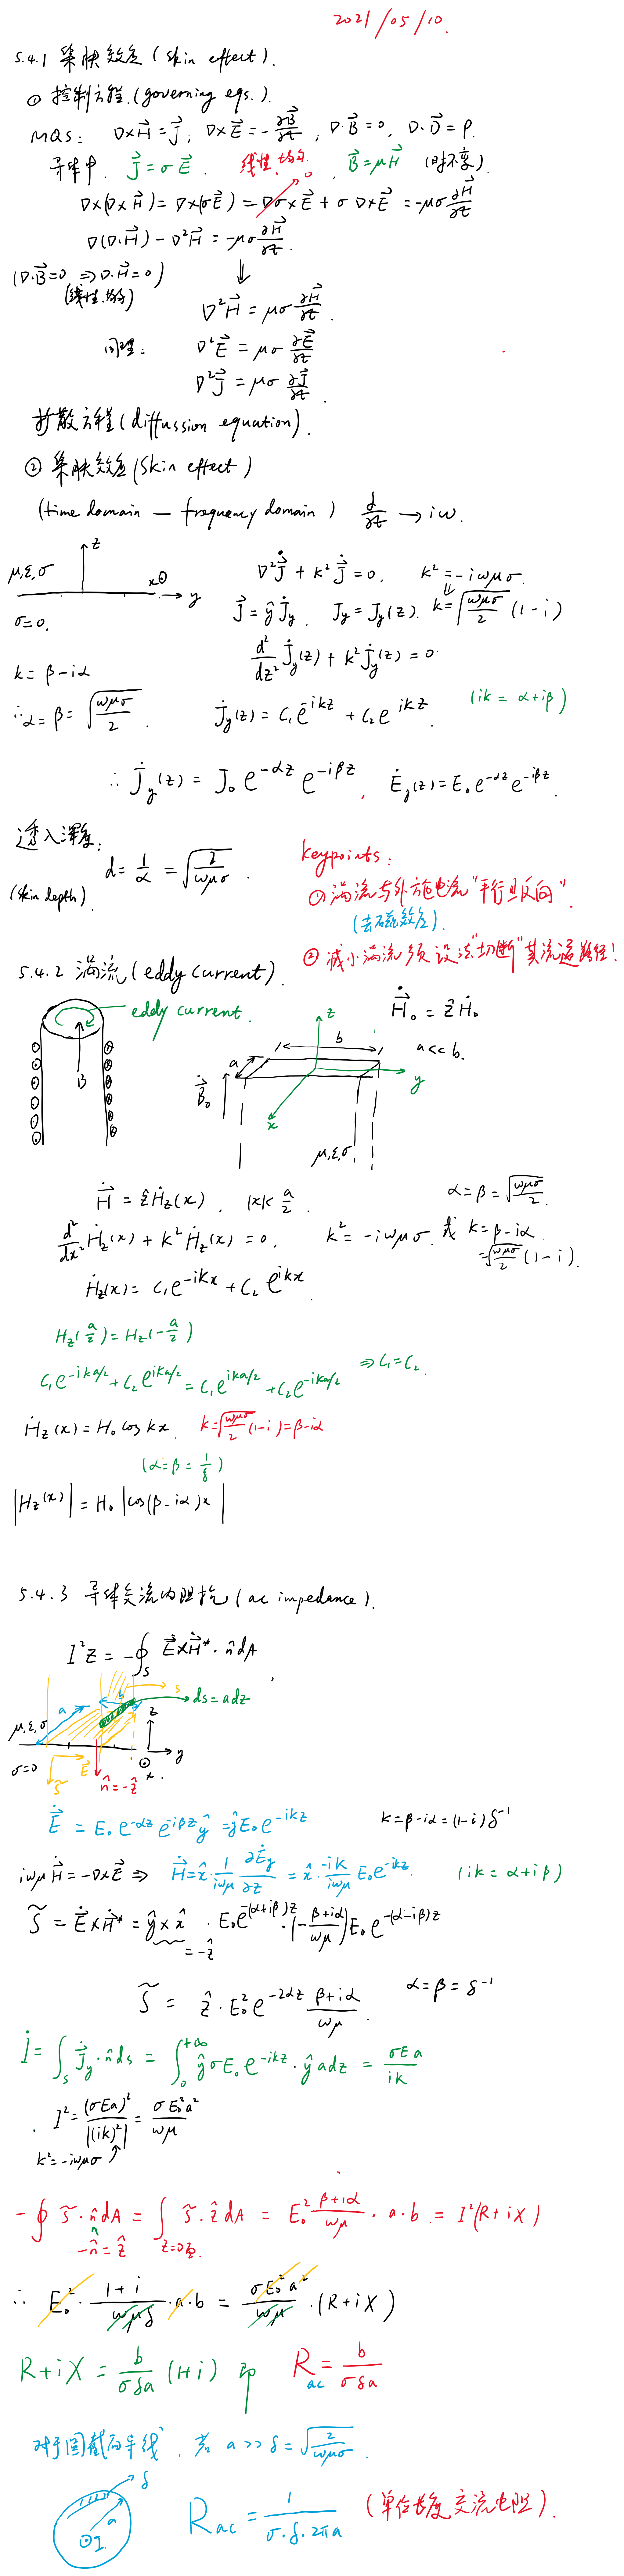 2021/05/10.
5.4.1 集肤效应 (skin effect).
① 控制方程. (governing eqs.).
MQS: ∇×H⃗ = J⃗, ∇×E⃗ = -∂B⃗/∂t, ∇·B⃗ = 0, ∇·D⃗ = ρ.
导体中. J⃗ = σE⃗. 线性、均匀. B⃗ = μH⃗ (时不变).
∇×(∇×H⃗) = ∇×(σE⃗) = ∇σ×E⃗ + σ∇×E⃗ = -μσ ∂H⃗/∂t
0
∇(∇·H⃗) - ∇²H⃗ = -μσ ∂H⃗/∂t.
(∇·B⃗=0 ⇒ ∇·H⃗=0)
(线性.均匀)
⇓
∇²H⃗ = μσ ∂H⃗/∂t.
同理: ∇²E⃗ = μσ ∂E⃗/∂t
∇²J⃗ = μσ ∂J⃗/∂t.
扩散方程 (diffussion equation).
② 集肤效应 (Skin effect)
(time domain — frequency domain) ∂/∂t → iω.
z
μ,ε,σ x⊙ → y
σ=0.
∇²J̇⃗ + k²J̇⃗ = 0, k² = -iωμσ.
J⃗ = ŷJ̇y, Jy = Jy(z). k = √(ωμσ/2) (1-i)
d²/dz² J̇y(z) + k²J̇y(z) = 0
k = β-iα
∴ α = β = √(ωμσ/2). J̇y(z) = C₁e^{-ikz} + C₂e^{ikz}. (ik = α+iβ)
∴ J̇y(z) = J₀e^{-αz}e^{-iβz}, Ėy(z) = E₀e^{-αz}e^{-iβz}.
透入深度:
(skin depth). d = 1/α = √(2/ωμσ).
keypoints:
① 涡流与外施电流"平行且反向".
(去磁效应).
② 减小涡流须设法"切断"其流通路径!
5.4.2 涡流 (eddy current).
eddy current.
B
Ḣ⃗₀ = ẑḢ₀
a<<b.
z
b
a
y
x
Ḃ⃗₀
μ,ε,σ.
Ḣ⃗ = ẑḢz(x), |x|< a/2. α = β = √(ωμσ/2).
d²/dx² Ḣz(x) + k²Ḣz(x) = 0, k² = -iωμσ. 或 k = β-iα
= √(ωμσ/2) (1-i).
Ḣz(x) = C₁e^{-ikx} + C₂e^{ikx}.
Hz(a/2) = Hz(-a/2)
C₁e^{-ika/2} + C₂e^{ika/2} = C₁e^{ika/2} + C₂e^{-ika/2} ⇒ C₁=C₂.
Ḣz(x) = H₀ cos kx. k = √(ωμσ/2) (1-i) = β-iα
(α=β=1/δ)
|Hz(x)| = H₀ |cos(β-iα)x|
5.4.3 导体交流内阻抗 (ac impedance).
I²Z = -∮_S E⃗×Ḣ⃗*·n̂dA
a
b
s
ds=adz
z
μ,ε,σ
σ=0
S̃
E⃗
n̂=-ẑ
⊙
x
y
Ė⃗ = E₀e^{-αz}e^{-iβz}ŷ = ŷE₀e^{-ikz} k=β-iα=(1-i)δ⁻¹
iωμḢ⃗ = -∇×E⃗ ⇒ Ḣ⃗ = x̂·1/(iωμ) ∂Ėy/∂z = x̂·(-ik)/(iωμ) E₀e^{-ikz}. (ik = α+iβ)
S̃ = Ė⃗×Ḣ⃗* = ŷ×x̂ · E₀e^{-(α+iβ)z}·(-(β+iα)/(ωμ))E₀e^{-(α-iβ)z}
= -ẑ
S̃ = ẑ·E₀²e^{-2αz} (β+iα)/(ωμ). α=β=δ⁻¹
İ = ∫_S J̇⃗y·n̂ds = ∫₀^{+∞} ŷσE₀e^{-ikz}·ŷadz = σEa/(ik)
. I² = (σEa)²/|(ik)²| = σE₀²a²/(ωμ)
k²=-iωμσ
-∮S̃·n̂dA = ∫_{z=0面} S̃·ẑdA = E₀² (β+iα)/(ωμ) · a·b = I²(R+iX)
-n̂=ẑ
∴ E₀²·(1+i)/(ωμδ)·a·b = σE₀²a²/(ωμ)·(R+iX)
R+iX = b/(σδa) (1+i) 即 R_ac = b/(σδa)
对于圆截面导线, 若 a>>δ=√(2/ωμσ).
δ
a
⊙I
R_ac = 1/(σ·δ·2πa) (单位长度交流电阻).